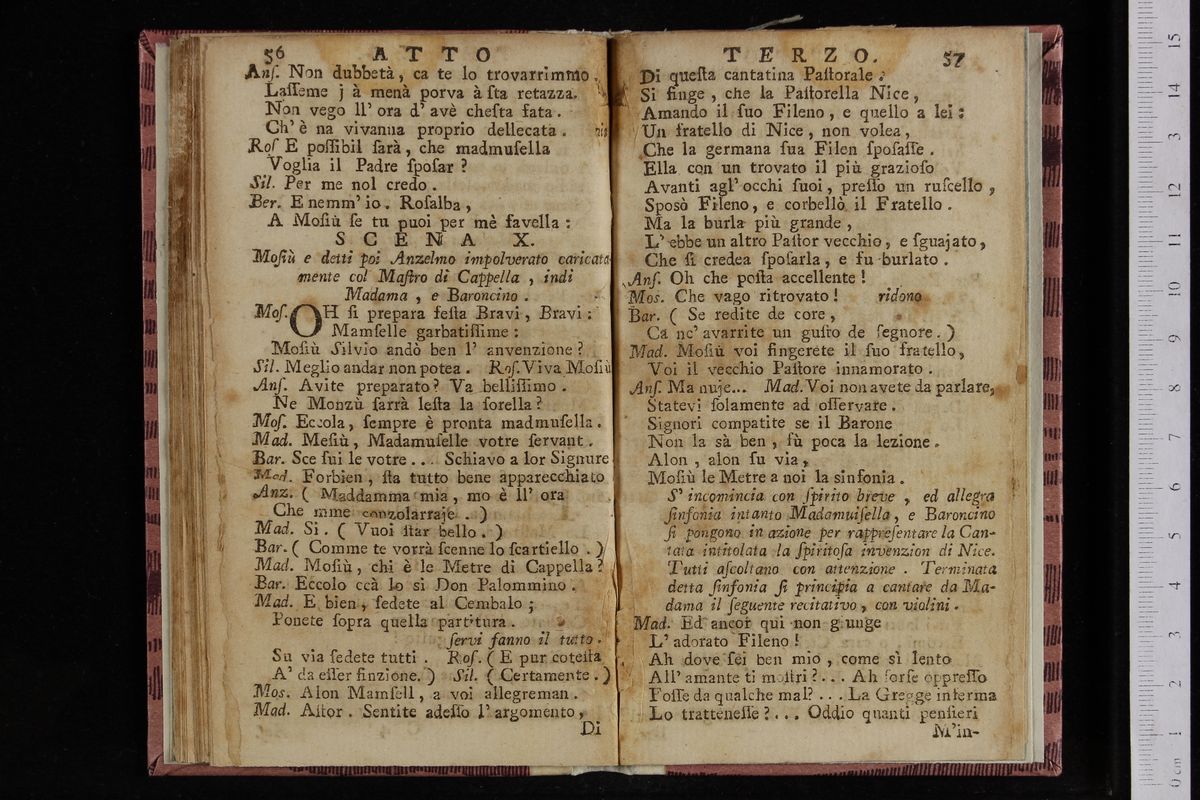 56 ATTO
Anſ. Non dubbetà, ca te lo trovarrimmo.
Laſſeme j à menà porva à ſta retazza.
Non vego ll' ora d' avè cheſta fata.
Ch' è na vivanna proprio dellecata.
Roſ E poſſibil ſarà, che madmuſella
Voglia il Padre ſpoſar ?
Sil. Per me nol credo.
Ber. E nemm' io. Roſalba,
A Moſiù ſe tu puoi per mè favella :
SCENA X.
Moſiù e detti poi Anzelmo impolverato caricata-
mente col Maſtro di Cappella, indi
Madama, e Baroncino.
Moſ. OH ſi prepara feſta Bravi, Bravi :
Mamſelle garbatiſſime :
Moſiù Silvio andò ben l' anvenzione ?
Sil. Meglio andar non potea. Roſ. Viva Moſiù
Anſ. Avite preparato ? Va belliſſimo.
Ne Monzù ſarrà leſta la ſorella ?
Moſ. Eccola, ſempre è pronta madmuſella.
Mad. Meſiù, Madamuſelle votre ſervant.
Bar. Sce ſui le votre.... Schiavo a lor Signure
Mad. Forbien, ſta tutto bene apparecchiato
Anz. ( Maddamma mia, mo è ll' ora
Che mme conzolarraje. )
Mad. Si. ( Vuoi ſtar bello. )
Bar. ( Comme te vorrà ſcenne lo ſcartiello. )
Mad. Moſiù, chi è le Metre di Cappella ?
Bar. Eccolo ccà lo sì Don Palommino.
Mad. E bien, ſedete al Cembalo ;
Ponete ſopra quella partitura.
ſervi fanno il tutto.
Su via ſedete tutti. Roſ. ( E pur coteſta
A' da eſſer finzione. ) Sil. ( Certamente. )
Mos. Alon Mamſell, a voi allegreman.
Mad. Aſtor. Sentite adeſſo l' argomento,
Di
TERZO. 57
Di queſta cantatina Paſtorale :
Si finge, che la Paſtorella Nice,
Amando il ſuo Fileno, e quello a lei :
Un fratello di Nice, non volea,
Che la germana ſua Filen ſpoſaſſe.
Ella con un trovato il più grazioſo
Avanti agl' occhi ſuoi, preſſo un ruſcello,
Sposò Fileno, e corbellò il Fratello.
Ma la burla più grande,
L' ebbe un altro Paſtor vecchio, e ſguajato,
Che ſi credea ſpoſarla, e fu burlato.
Anſ. Oh che poſta accellente !
Mos. Che vago ritrovato ! ridono
Bar. ( Se redite de core,
Ca nc' avarrite un guſto de ſegnore. )
Mad. Moſiù voi fingerete il ſuo fratello,
Voi il vecchio Paſtore innamorato.
Anſ. Ma nuje... Mad. Voi non avete da parlare,
Statevi ſolamente ad oſſervare.
Signori compatite se il Barone
Non la sà ben, fù poca la lezione.
Alon, alon ſu via,
Moſiù le Metre a noi la sinfonia.
S' incomincia con ſpirito breve, ed allegra
ſinfonia intanto Madamuiſella, e Baroncino
ſi pongono in azione per rappreſentare la Can-
tata intitolata la ſpiritoſa invenzion di Nice.
Tutti aſcoltano con attenzione. Terminata
detta ſinfonia ſi principia a cantare da Ma-
dama il ſeguente recitativo, con violini.
Mad. Ed ancor qui non giunge
L' adorato Fileno !
Ah dove ſei ben mio, come sì lento
All' amante ti moſtri ?... Ah forſe oppreſſo
Foſſe da qualche mal?... La Gregge inferma
Lo tratteneſſe ?... Oddio quanti penſieri
M'in-